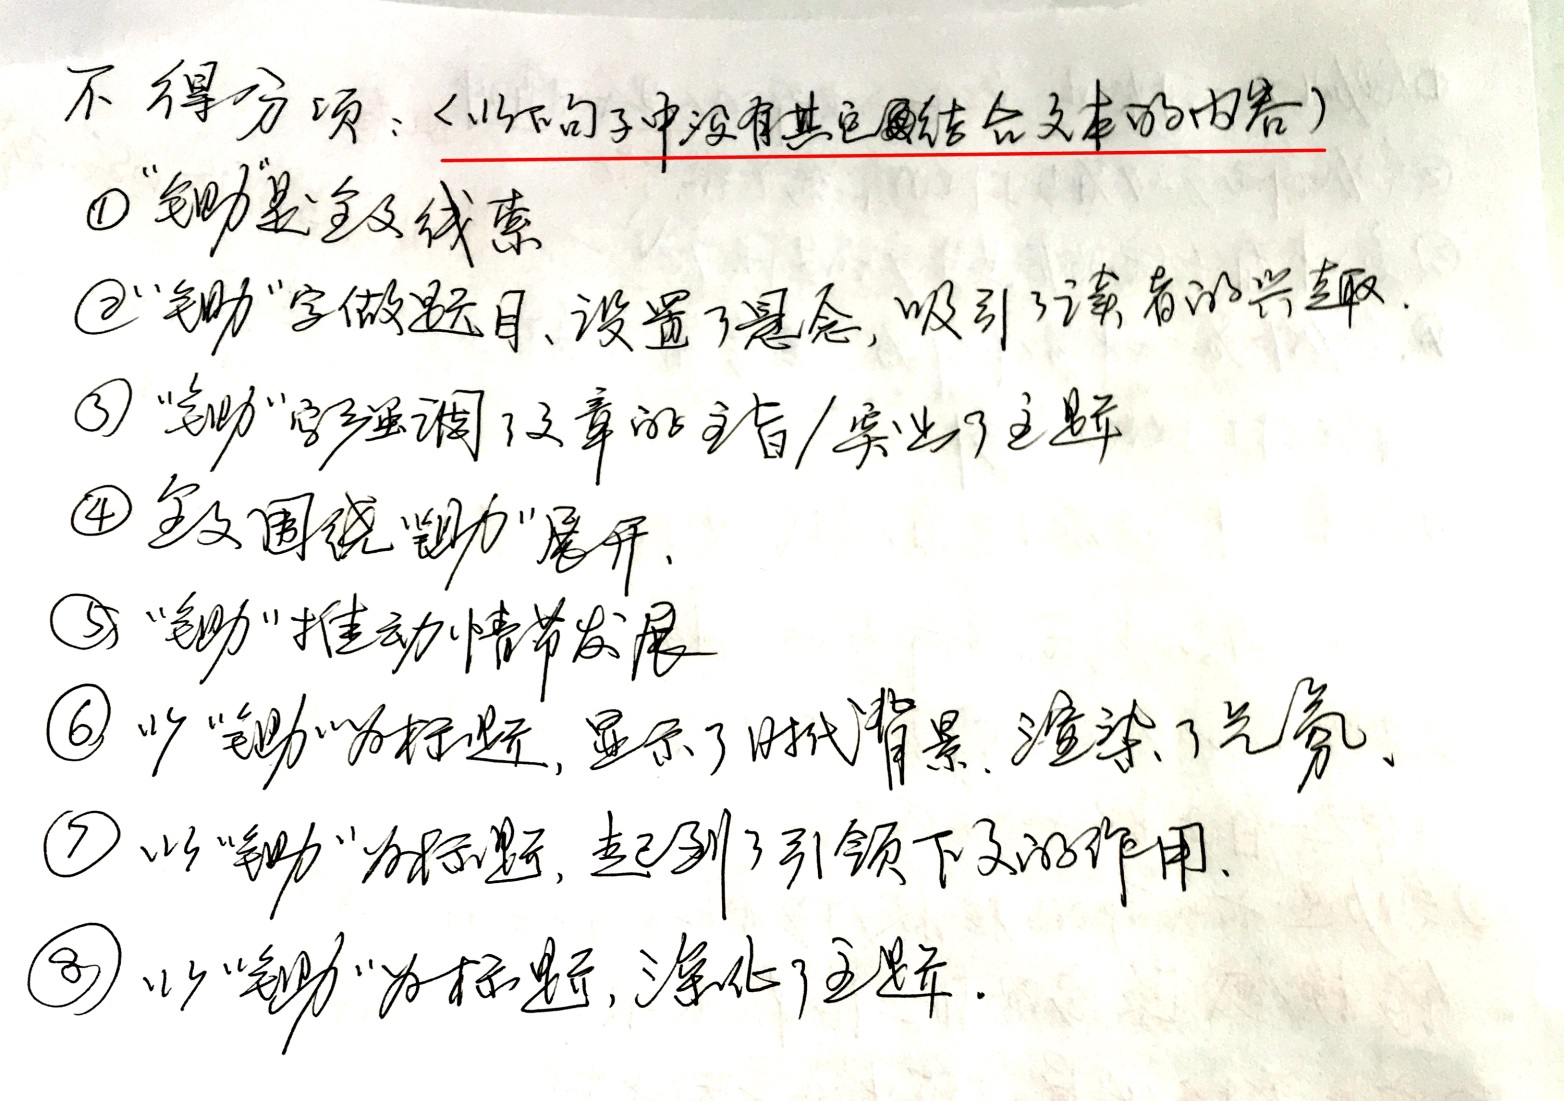 不得分项：(以下句子中没有其它结合文本的内容)
①“锄”是全文线索
②“锄”字做题目、设置了悬念，吸引了读者的兴趣.
③“锄”字强调了文章的主旨/突出了主题
④全文围绕“锄”展开、
⑤“锄”推动情节发展
⑥以“锄”为标题，显示了时代背景、渲染了氛、
⑦以“锄”为标题，起到了引领下文的作用.
⑧以“锄”为标题，深化了主题.